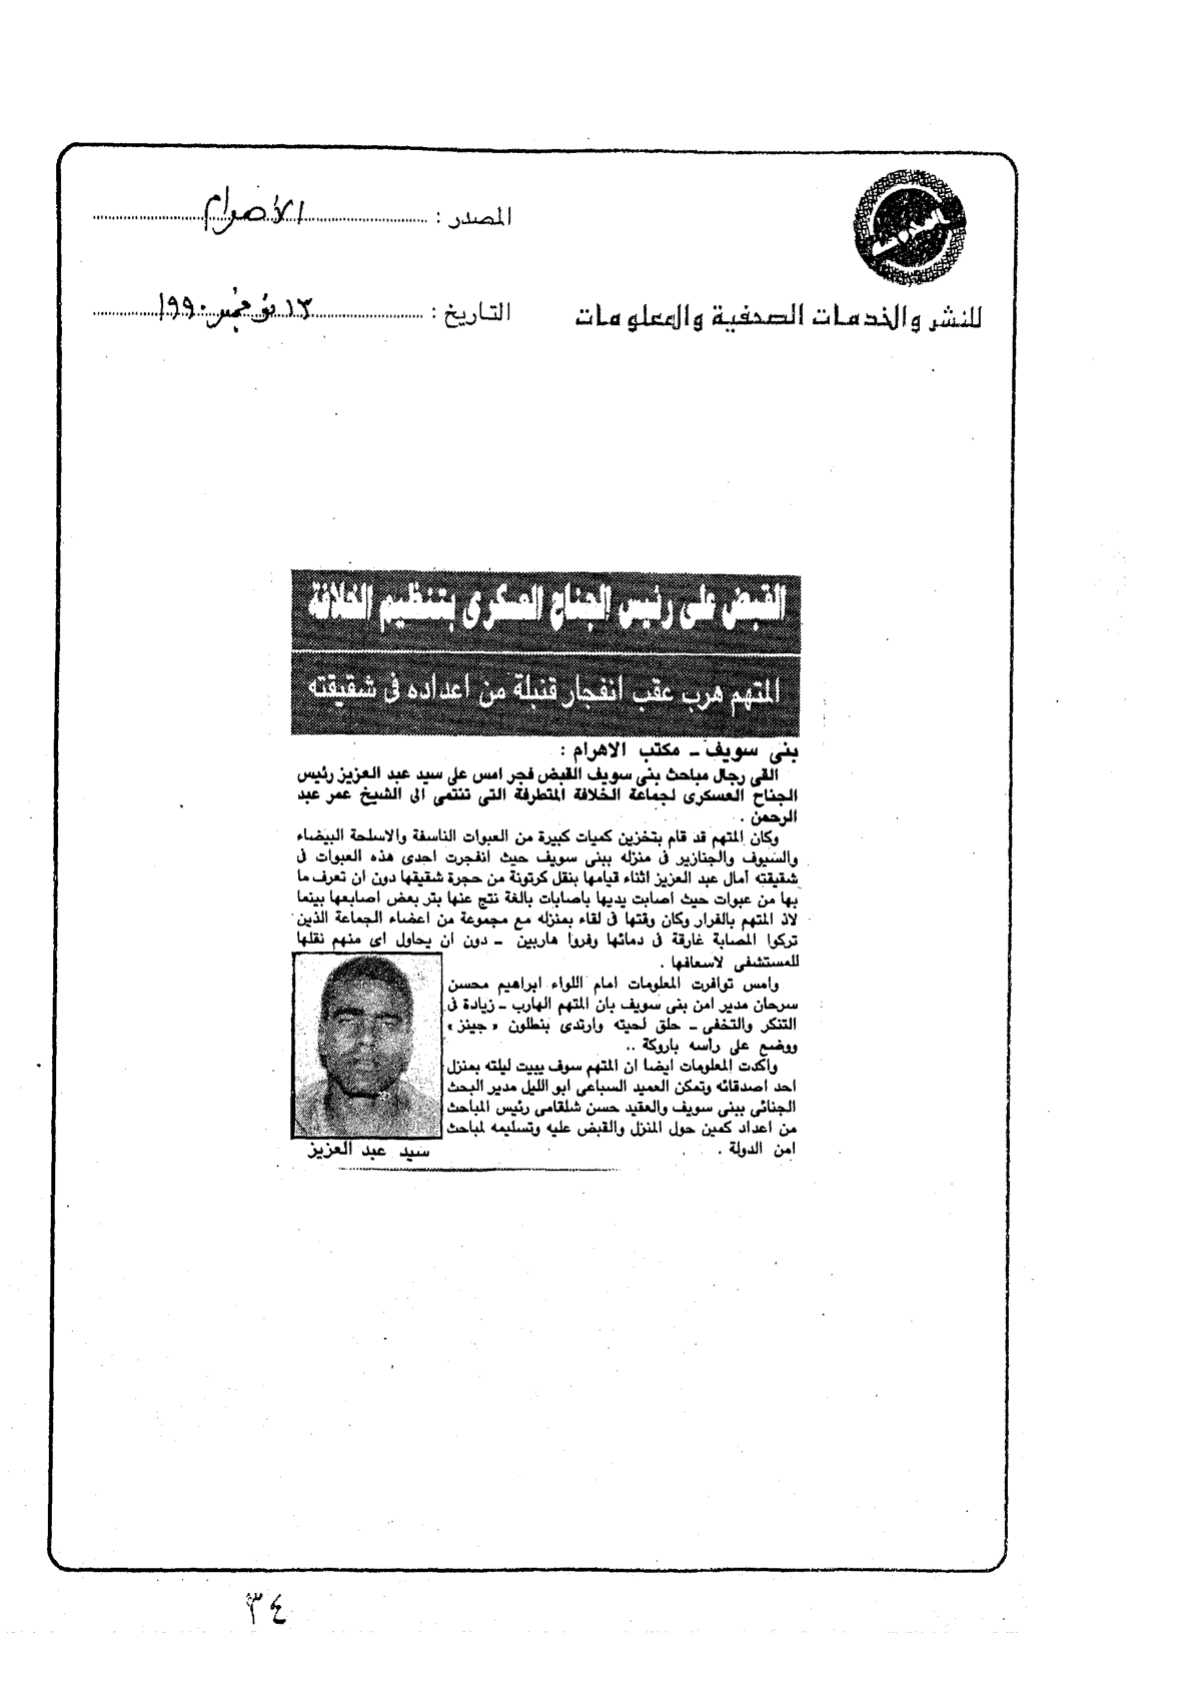 المصدر : الأهرام
التاريخ : ١٣ نوفمبر ١٩٩٠
للنشر والخدمات الصحفية والمعلومات
القبض على رئيس الجناح العسكرى بتنظيم الخلافة
المتهم هرب عقب انفجار قنبلة من اعداده فى شقيقته
بنى سويف ـ مكتب الاهرام :
القى رجال مباحث بنى سويف القبض فجر امس على سيد عبد العزيز رئيس
الجناح العسكرى لجماعة الخلافة المتطرفة التى تنتمى الى الشيخ عمر عبد
الرحمن .
وكان المتهم قد قام بتخزين كميات كبيرة من العبوات الناسفة والاسلحة البيضاء
والسيوف والجنازير فى منزله ببنى سويف حيث انفجرت احدى هذه العبوات فى
شقيقته آمال عبد العزيز اثناء قيامها بنقل كرتونة من حجرة شقيقها دون ان تعرف ما
بها من عبوات حيث اصابت يديها باصابات بالغة نتج عنها بتر بعض اصابعها بينما
لاذ المتهم بالفرار وكان وقتها فى لقاء بمنزله مع مجموعة من اعضاء الجماعة الذين
تركوا المصابة غارقة فى دمائها وفروا هاربين ـ دون ان يحاول اى منهم نقلها
للمستشفى لاسعافها .
وامس توافرت المعلومات امام اللواء ابراهيم محسن
سرحان مدير امن بنى سويف بان المتهم الهارب ـ زيادة فى
التنكر والتخفى ـ حلق لحيته وارتدى بنطلون « جينز »
ووضع على رأسه باروكة ..
واكدت المعلومات ايضا ان المتهم سوف يبيت ليلته بمنزل
احد اصدقائه وتمكن العميد السباعى ابو الليل مدير البحث
الجنائى ببنى سويف والعقيد حسن شلقامى رئيس المباحث
من اعداد كمين حول المنزل والقبض عليه وتسليمه لمباحث
امن الدولة .
سيد عبد العزيز
٣٤